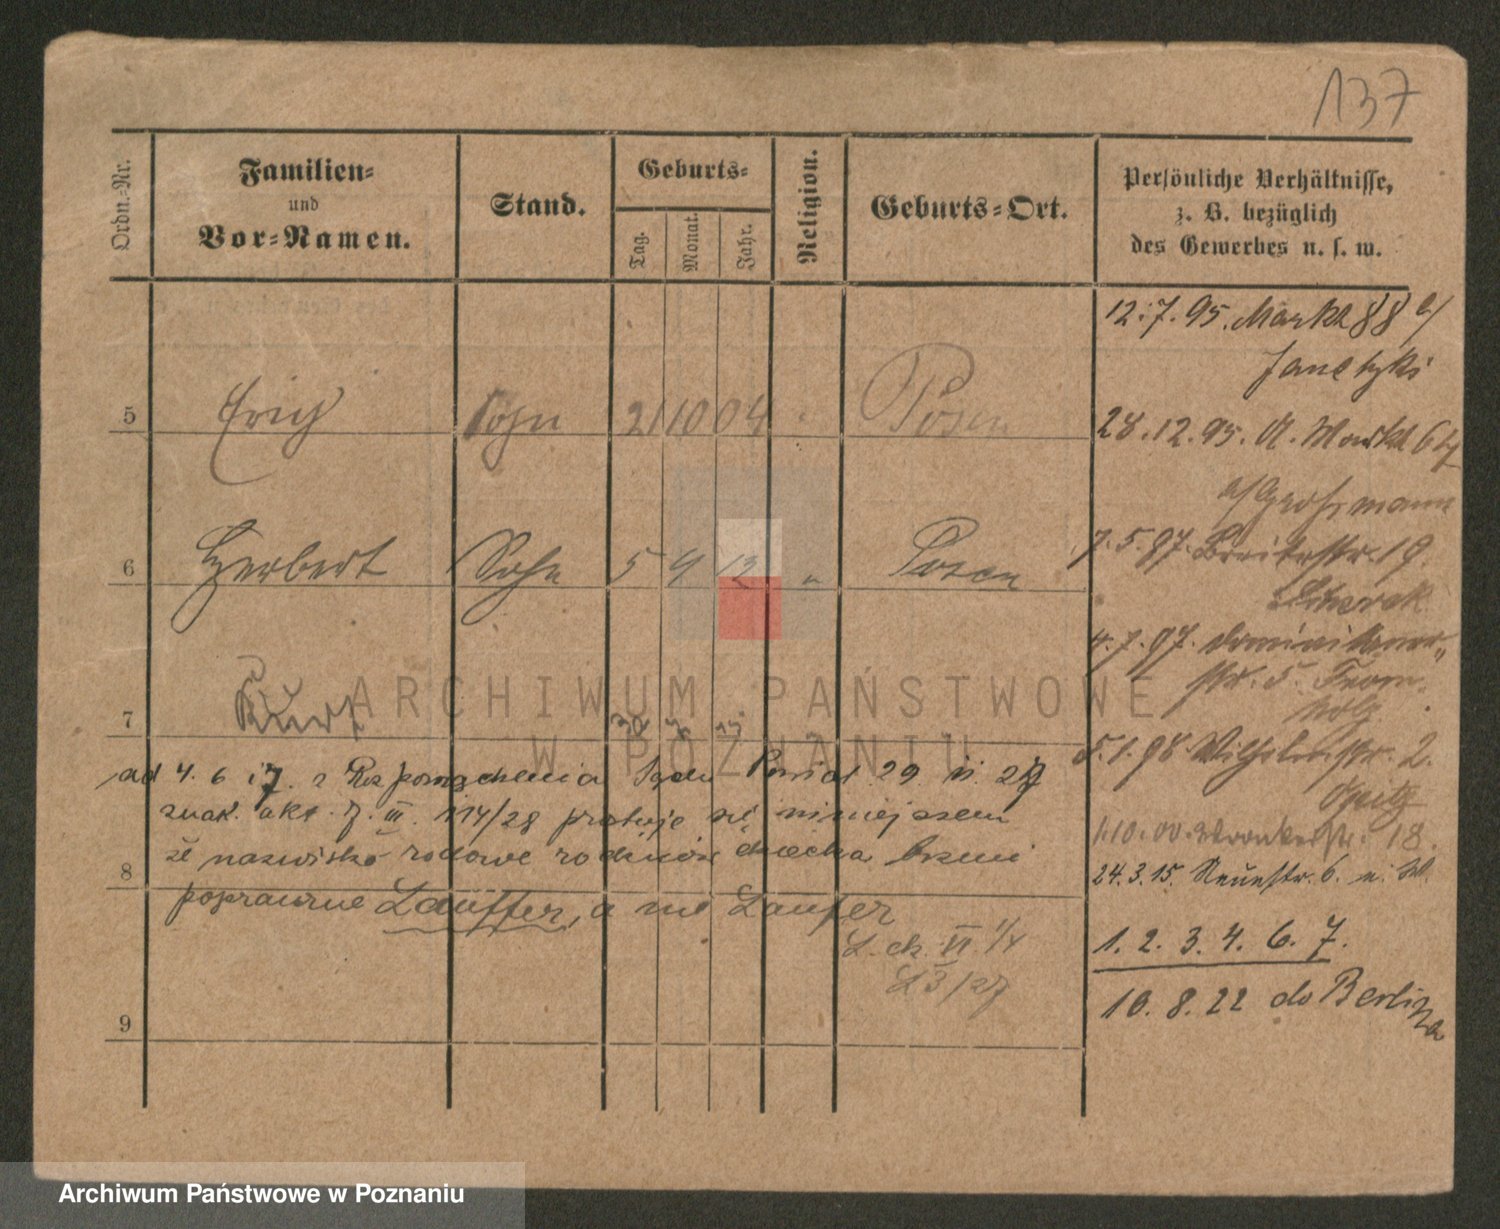 137
Ordn.-Nr.
Familien-
und
Vor-Namen.
Stand.
Geburts-
Tag.
Monat.
Jahr.
Religion.
Geburts-Ort.
Persönliche Verhältnisse,
z. B. bezüglich
des Gewerbes u. s. w.
5 Erich Sohn 21 10 04 " Posen
6 Herbert Sohn 5 9 12 " Posen
7 Kurt
ad 4. 6 i 7. z Rozporządzenia Sądu Powiat. 29. 11. 28
znak. akt. 7. III. 114/28 prostuje się niniejszem
że nazwisko rodowe rodziców dziecka brzmi
8
poprawnie Lauffer, a nie Laufer
L. ch. VI 1/4
L 3/27
9
12.7.95. Markt 88 b/
Janetzki
28.12.95. A. Markt 64
b/Grossmann
7.5.97. Breitestr. 19.
4.7.97. Dominikaner-
str. 5. From-
holz
5.1.98 Wilhelmstr. 2.
Opitz
1.10.00. Wronkerstr. 18.
24.3.15. Neuestr. 6.
1. 2. 3. 4. 6. 7.
10.8.22 do Berlina
ARCHIWUM PAŃSTWOWE
W POZNANIU
Archiwum Państwowe w Poznaniu